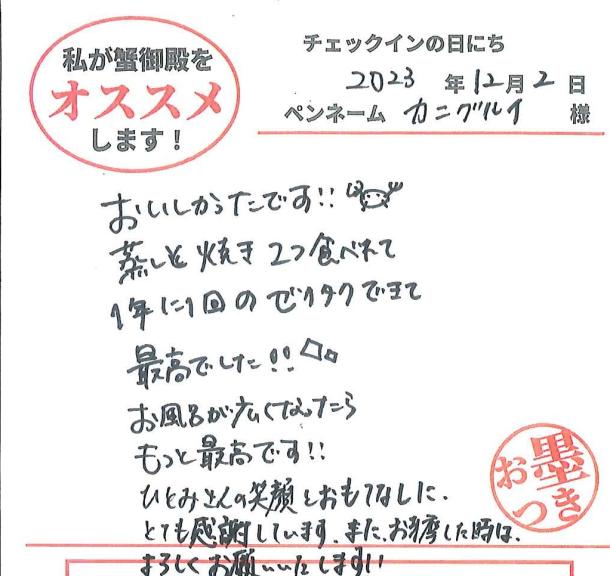 私が蟹御殿を
オススメ
します！
チェックインの日にち
2023年12月2日
ペンネーム カニグルイ 様
おいしかったです!!
蒸しと焼き2つ食べれて
1年に1回のぜいタクできて
最高でした!!
お風呂が広くなったら
もっと最高です!!
ひとみさんの笑顔とおもてなしに、
とても感謝しています。また、お邪魔した時は、
よろしくお願いいたします
お墨つき